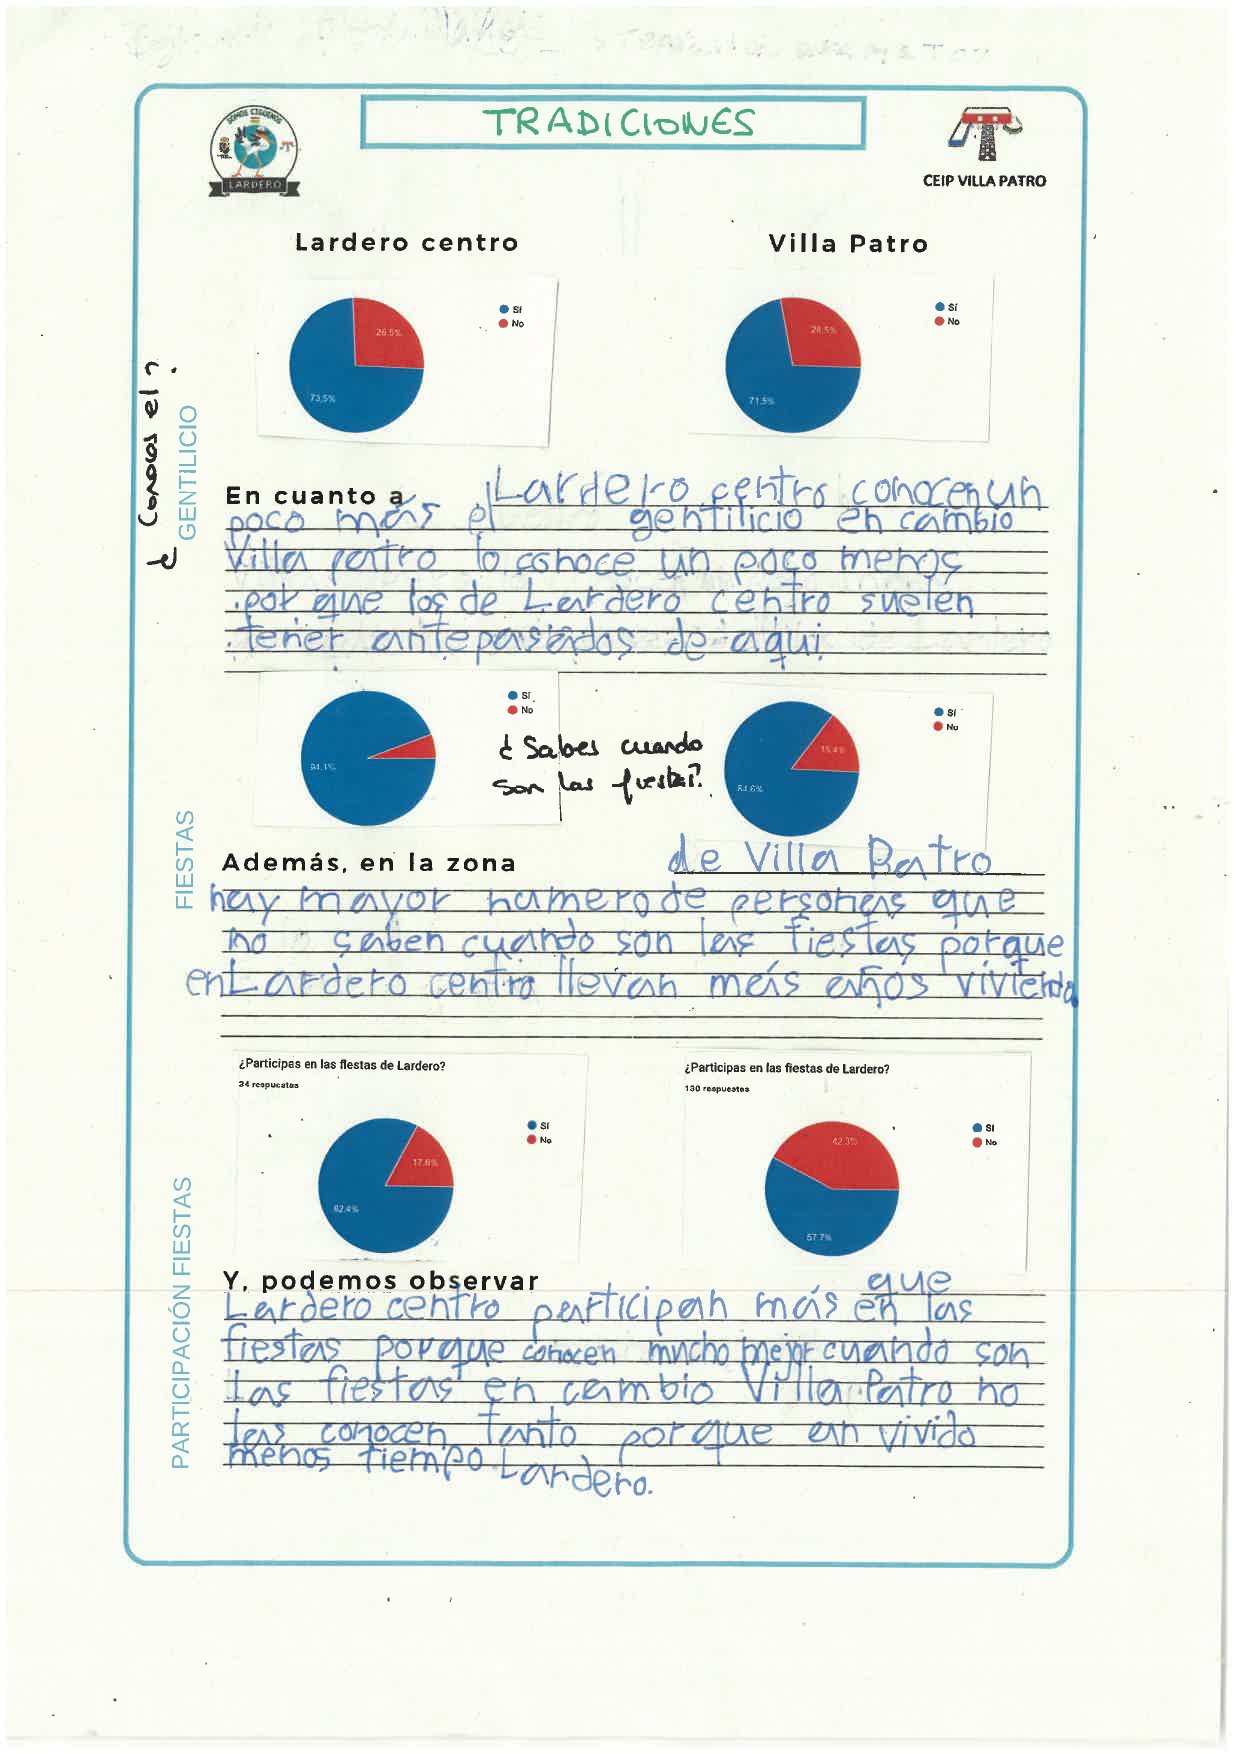 TRADICIONES
SOMOS CIGÜEÑOS
LARDERO
CEIP VILLA PATRO
Lardero centro
Villa Patro
Sí
No
26.5%
73,5%
Sí
No
28,5%
71,5%
¿Conoces el?
GENTILICIO
En cuanto a Lardero centro conocen un
poco más el gentilicio en cambio
Villa patro lo conoce un poco menos
por que los de Lardero centro suelen
tener antepasados de aqui
Sí
No
94.1%
¿Sabes cuando
son las fiestas?
Sí
No
15,4%
84,6%
FIESTAS
Además, en la zona de Villa Patro
hay mayor numero de personas que
no saben cuando son las fiestas porque
en Lardero centro llevan más años viviendo
¿Participas en las fiestas de Lardero?
34 respuestas
Sí
No
17.6%
82.4%
¿Participas en las fiestas de Lardero?
130 respuestas
Sí
No
42,3%
57.7%
PARTICIPACIÓN FIESTAS
Y, podemos observar que
Lardero centro participan más en las
fiestas porque conocen mucho mejor cuando son
las fiestas en cambio Villa Patro no
las conocen tanto porque an vivido
menos tiempo Lardero.